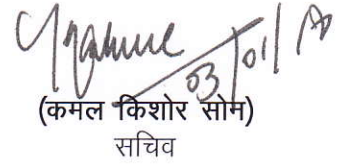 03/01/18
(कमल किशोर सोम)
सचिव